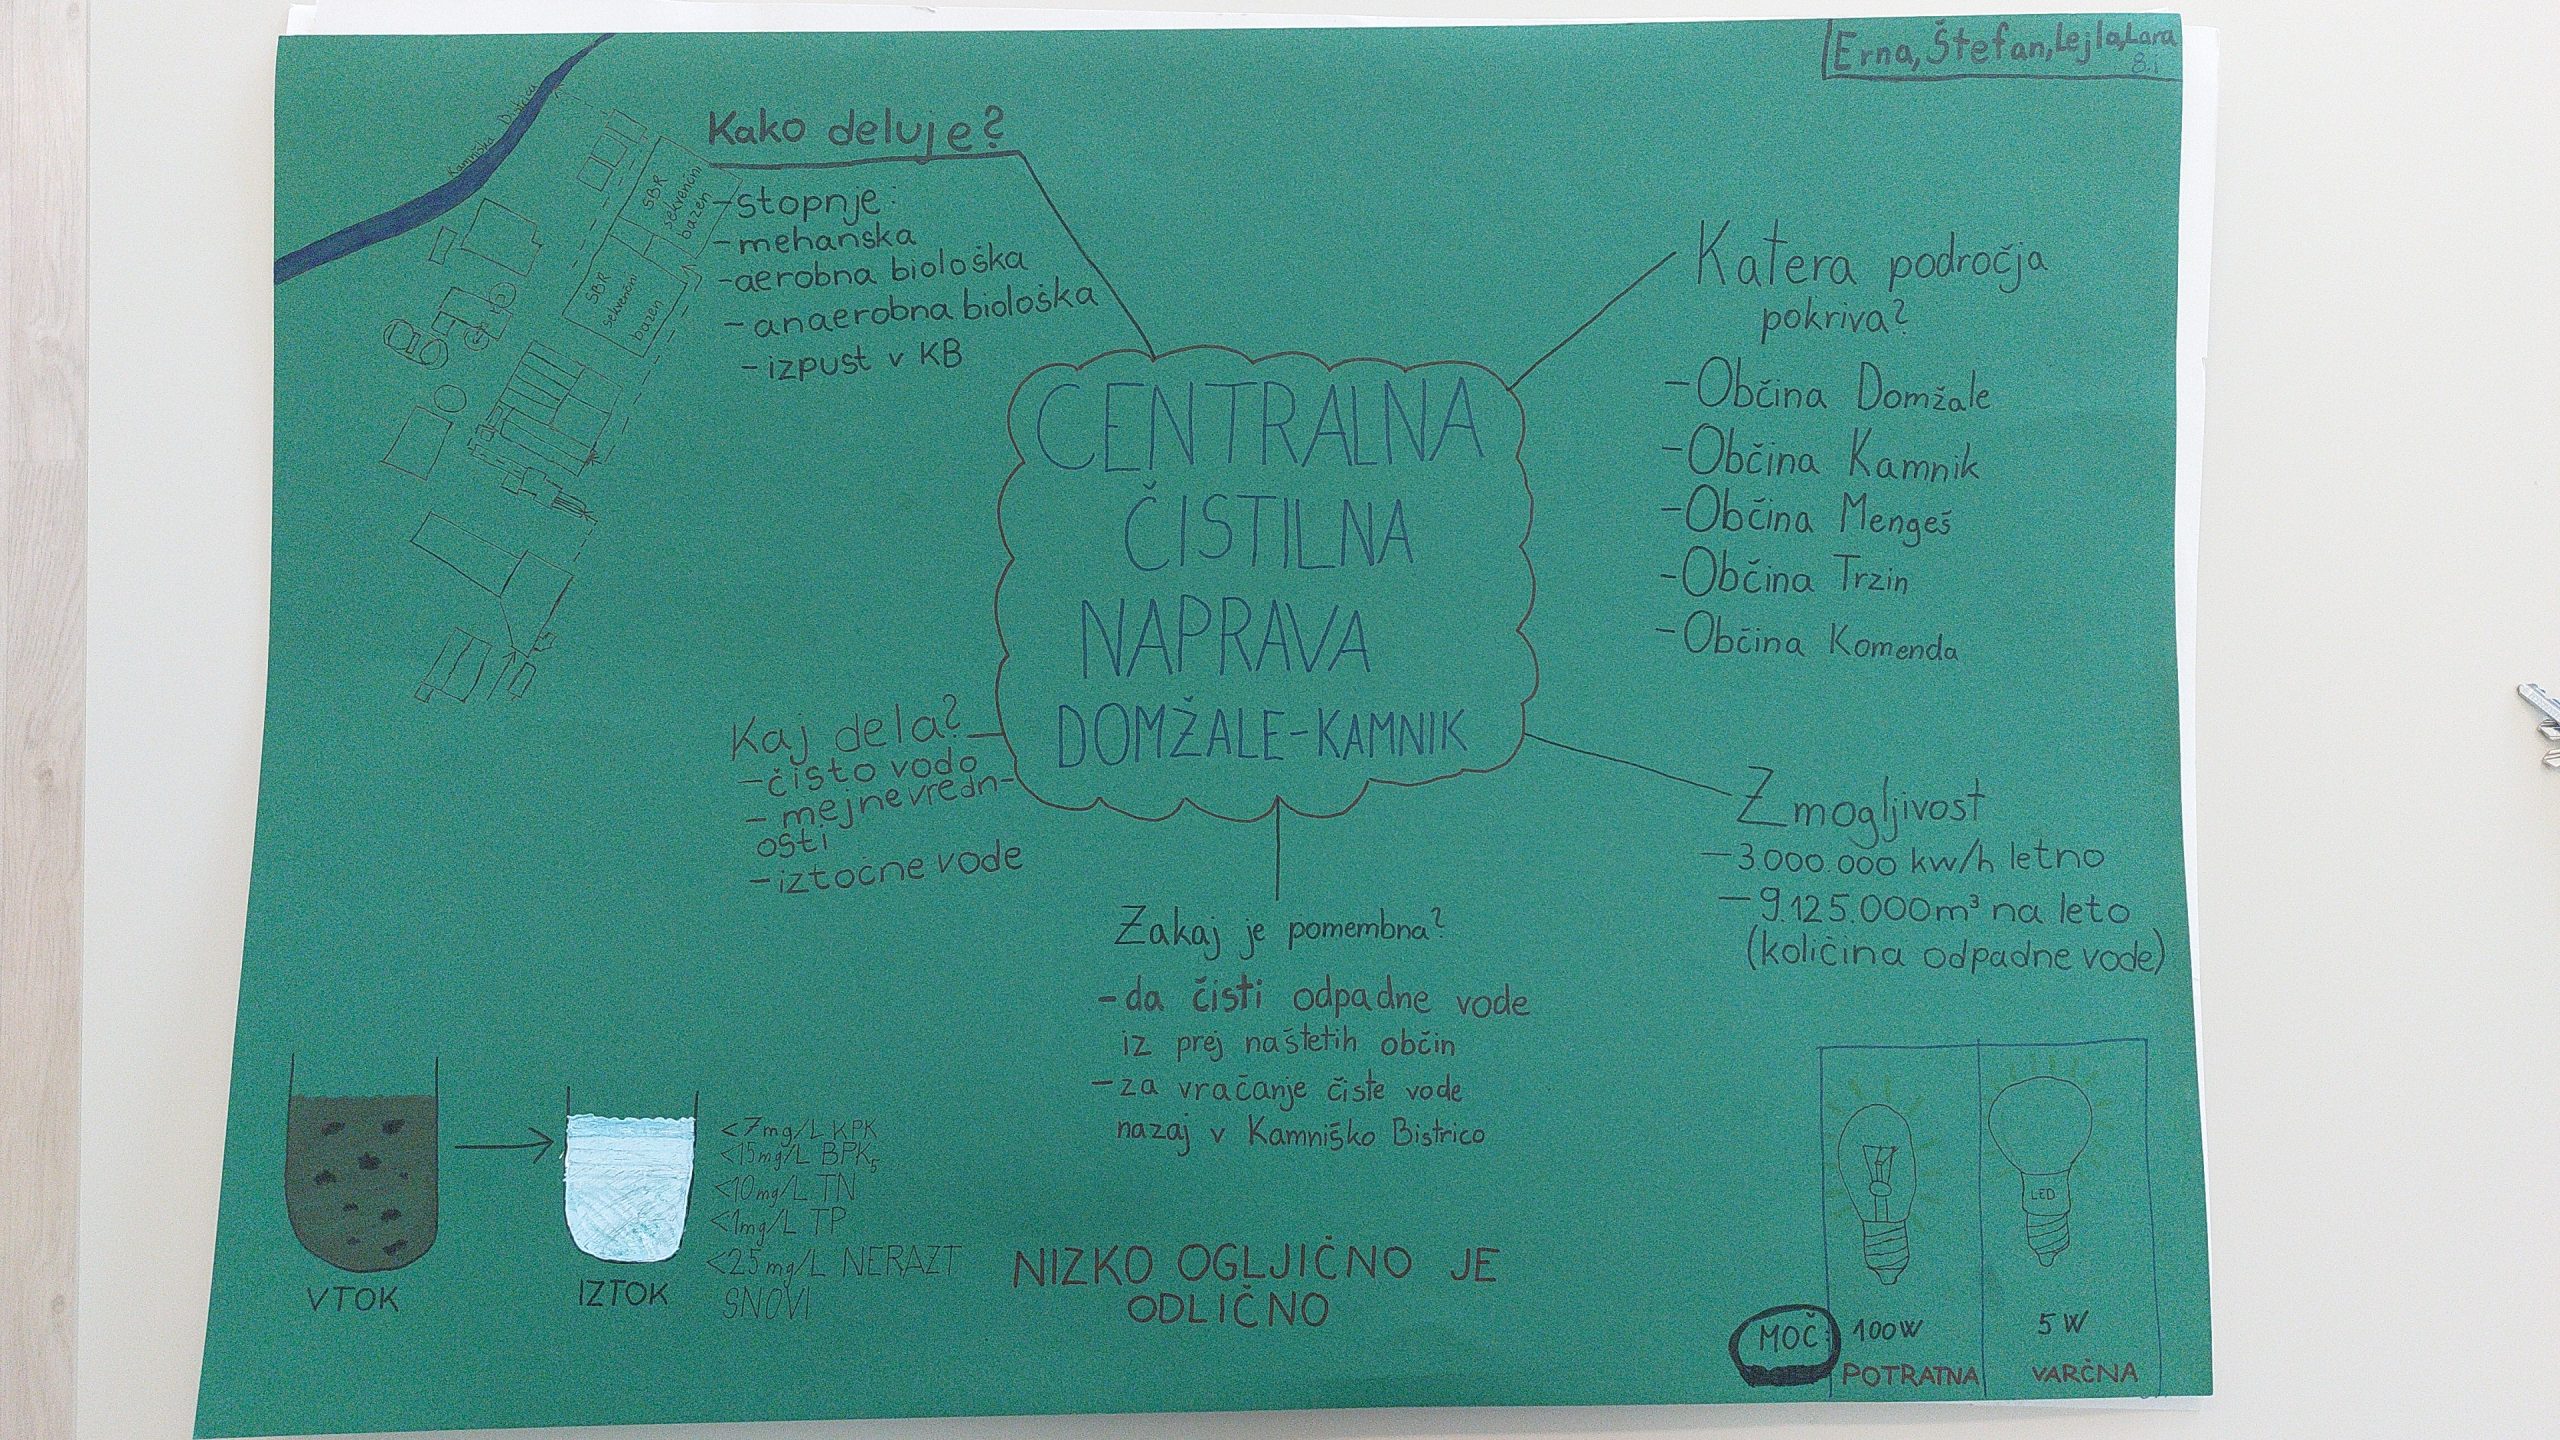 Erna, Štefan, Lejla, Lara
8.i
Kamniška Bistrica
SBR
sekvenčni
bazen
SBR
sekvenčni
bazen
Kako deluje?
-stopnje:
-mehanska
-aerobna biološka
-anaerobna biološka
-izpust v KB
Katera področja
pokriva?
-Občina Domžale
-Občina Kamnik
-Občina Mengeš
-Občina Trzin
-Občina Komenda
CENTRALNA
ČISTILNA
NAPRAVA
DOMŽALE-KAMNIK
Kaj dela?
-čisto vodo
-mejne vredn-
osti
-iztočne vode
Zmogljivost
-3.000.000 kw/h letno
-9.125.000m³ na leto
(količina odpadne vode)
Zakaj je pomembna?
-da čisti odpadne vode
iz prej naštetih občin
-za vračanje čiste vode
nazaj v Kamniško Bistrico
<7mg/L KPK
<15mg/L BPK5
<10mg/L TN
<1mg/L TP
<25mg/L NERAZT
SNOVI
VTOK
IZTOK
NIZKO OGLJIČNO JE
ODLIČNO
LED
MOČ: 100W 5W
POTRATNA VARČNA